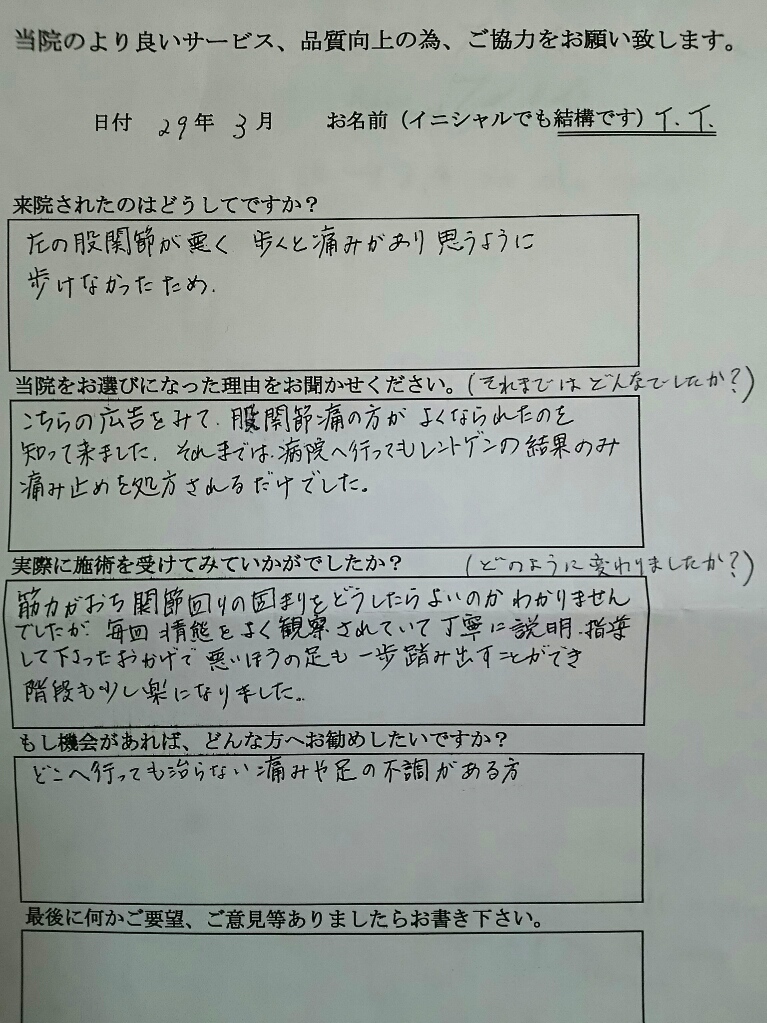 当院のより良いサービス、品質向上の為、ご協力をお願い致します。
日付 29年 3月 お名前(イニシャルでも結構です) T. T.
来院されたのはどうしてですか?
左の股関節が悪く 歩くと痛みがあり 思うように
歩けなかったため.
当院をお選びになった理由をお聞かせください。(それまではどんなでしたか?)
こちらの広告をみて、股関節痛の方が よくなられたのを
知って来ました. それまでは、病院へ行ってもレントゲンの結果のみ
痛み止めを処方されるだけでした。
実際に施術を受けてみていかがでしたか? (どのように変わりましたか?)
筋力がおち関節回りの固まりをどうしたらよいのか わかりません
でしたが、毎回 状態をよく観察されていて丁寧に説明.指導
して下さったおかげで 悪いほうの足も 一歩踏み出すことができ
階段も少し楽になりました。
もし機会があれば、どんな方へお勧めしたいですか?
どこへ行っても治らない痛みや足の不調がある方
最後に何かご要望、ご意見等ありましたらお書き下さい。